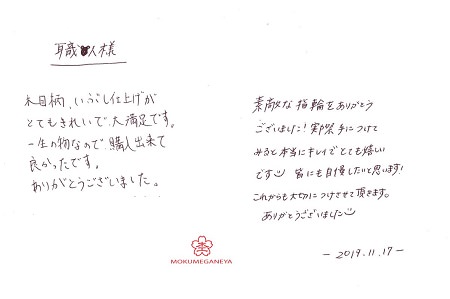 職人様
木目柄、いぶし仕上げが
とてもきれいで、大満足です。
一生の物なので、購入出来て
良かったです。
ありがとうございました。
素敵な指輪をありがとう
ございました！実際手につけて
みると本当にキレイでとても嬉しい
です 皆にも自慢したいと思います！
これからも大切につけさせて頂きます。
ありがとうございました
MOKUMEGANEYA
- 2019.11.17 -